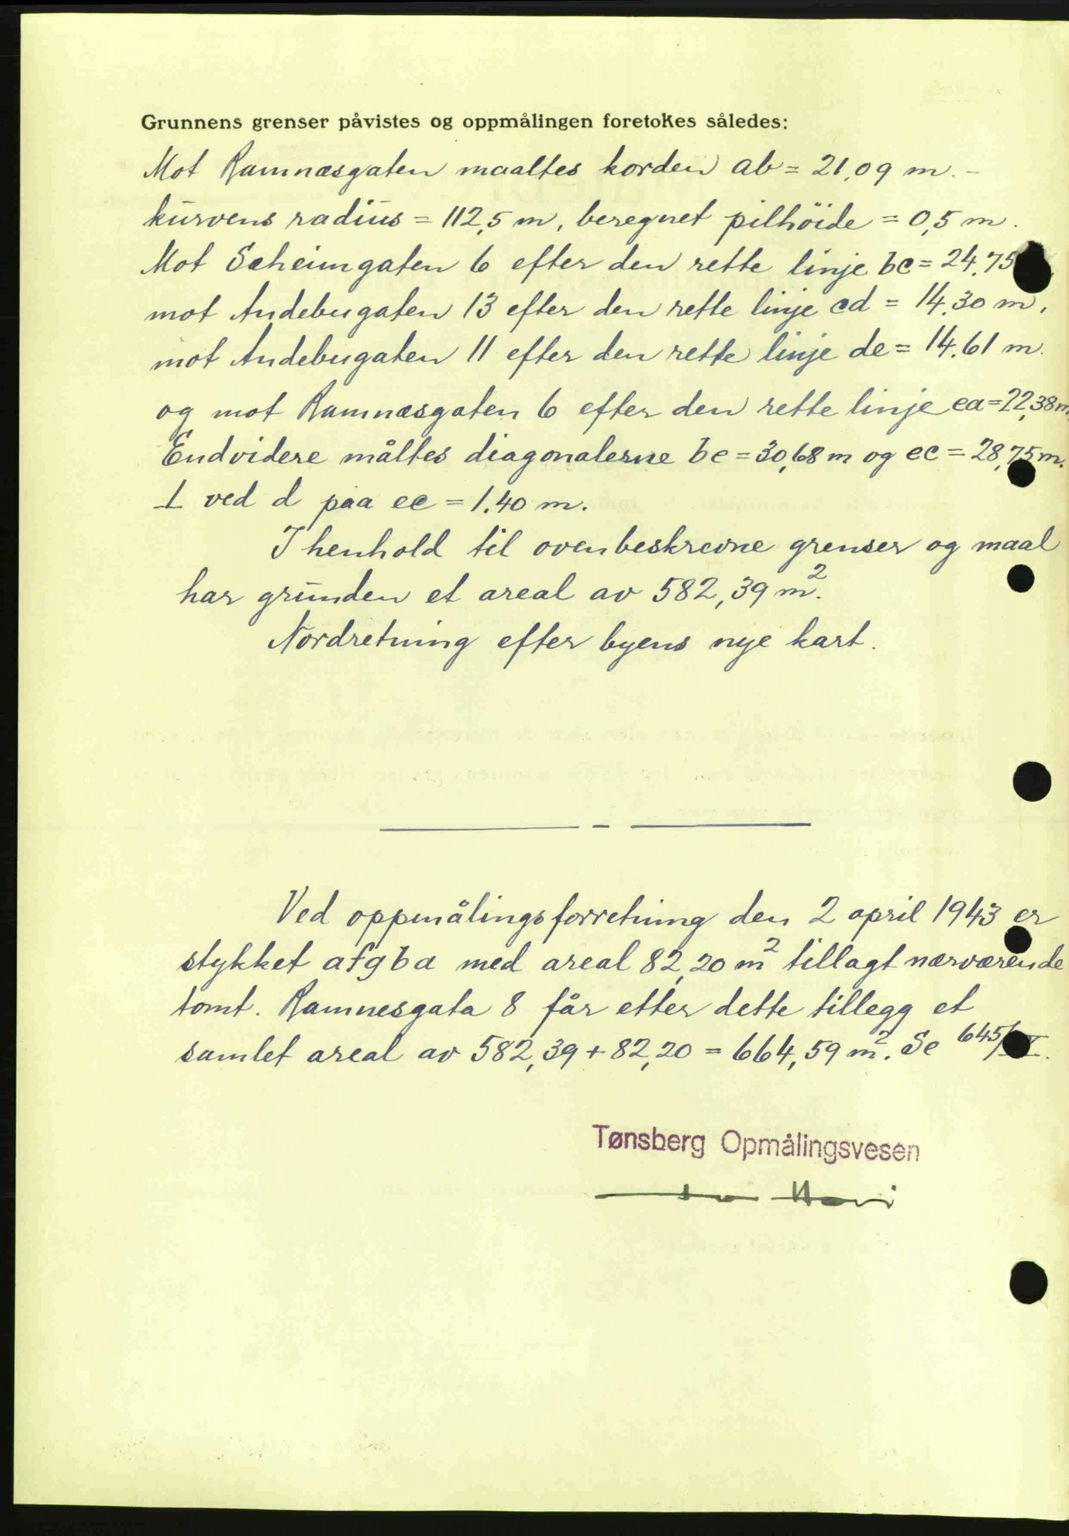 Grunnens grenser påvistes og oppmålingen foretokes således:
Mot Ramnæsgaten maaltes korden ab = 21,09 m. –
kurvens radius = 112,5 m, beregnet pilhöide = 0,5 m.
Mot Scheimgaten 6 efter den rette linje bc = 24,75
mot Andebugaten 13 efter den rette linje cd = 14,30 m,
mot Andebugaten 11 efter den rette linje de = 14,61 m.
og mot Ramnæsgaten 6 efter den rette linje ea = 22,38 m,
Endvidere måltes diagonalerne be = 30,68 m og ec = 28,75 m.
⊥ ved d paa ec = 1,40 m.
I henhold til ovenbeskrevne grenser og maal
har grunden et areal av 582,39 m².
Nordretning efter byens nye kart.
Ved oppmålingsforretning den 2 april 1943 er
stykket afgba med areal 82,20 m² tillagt nærværende
tomt. Ramnesgata 8 får etter dette tillegg et
samlet areal av 582,39 + 82,20 = 664,59 m². Se 645/
Tønsberg Opmålingsvesen